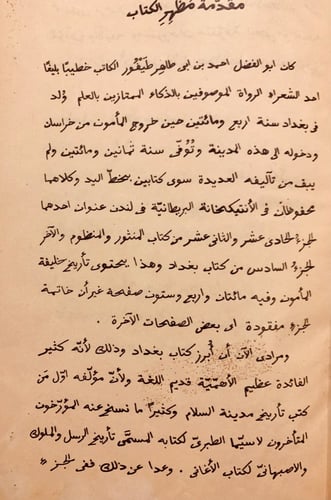 مقدمة مظهر الكتاب
كان ابو الفضل احمد بن ابى طاهر طيفور الكاتب خطيبًا بليغًا
احد الشعراء الرواة الموصوفين بالذكاء الممتازين بالعلم وُلد
فى بغداد سنة اربع ومائتين حين خروج المأمون من خراسان
ودخوله الى هذه المدينة وتُوُفّى سنة ثمانين ومائتين ولم
يبق من تآليفه العديدة سوى كتابين بخطّ اليد وكلاهما
محفوظان فى الأنتيكخانة البريطانيّة فى لندن عنوان احدهما
الجزء الحادى عشر والثانى عشر من كتاب المنثور والمنظوم والآخر
الجزء السادس من كتاب بغداد وهذا يحتوى تأريخ خليفة
المأمون وفيه مائتان واربع وستون صفحة غير أن خاتمة
الجزء مفقودة اى بعض الصفحات الآخرة.
ومرادى الآن أن أُبرز كتاب بغداد وذلك لأنّه كثير
الفائدة عظيم الأهمّيّة قديم اللغة ولأنّ مؤلّفه اوّل من
كتب تأريخ مدينة السلام وكثيرًا ما نسخ عنه المؤرّخون
المتأخرون لاسيّما الطبرىّ لكتابه المسمَّى تأريخ الرسل والملوك
والاصبهانىّ لكتاب الأغانى. وعدا عن ذلك ففى الجزء